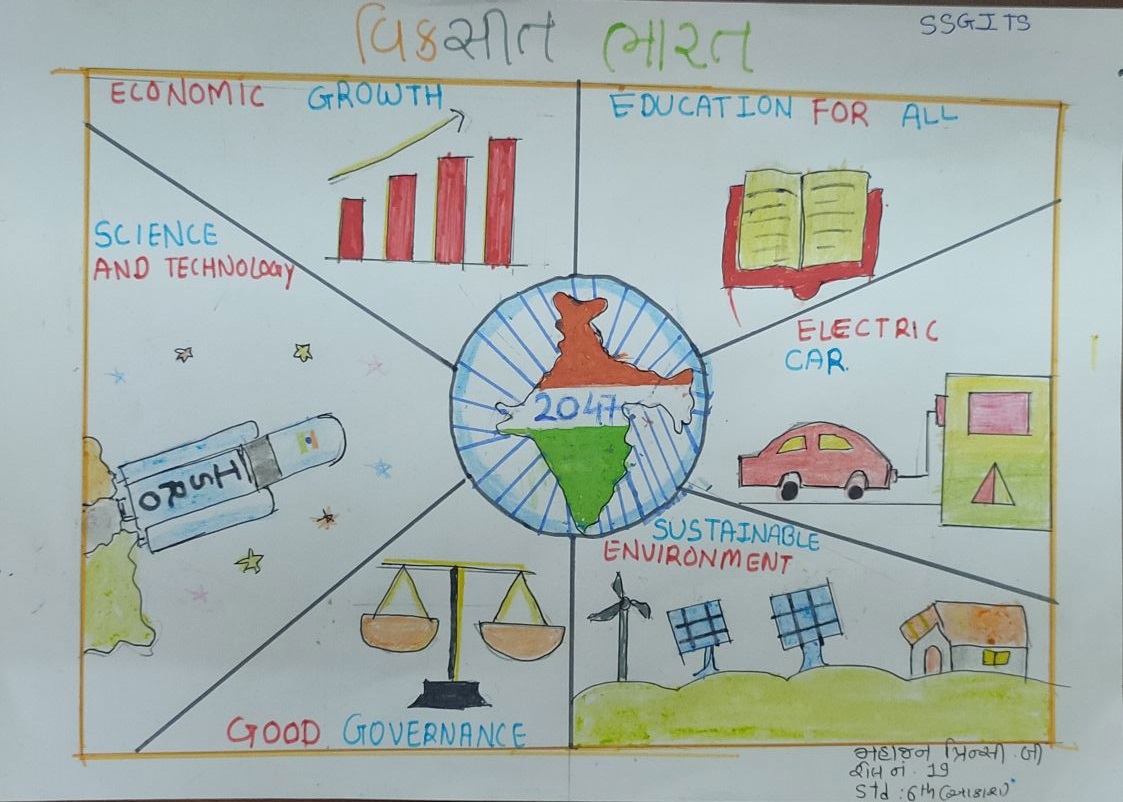 વિકસીત ભારત
SSGITS
ECONOMIC GROWTH
EDUCATION FOR ALL
SCIENCE
AND TECHNOLOGY
ELECTRIC
CAR.
2047
ISRO
SUSTAINABLE
ENVIRONMENT
GOOD GOVERNANCE
મહાજન પ્રિન્સી .જી
રોલ નં. 19
Std : 6th (આકાશ)